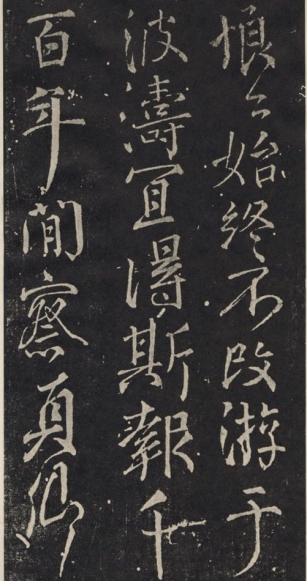 恨々始終不改游于
波濤宜得斯報千
百年間察真卿